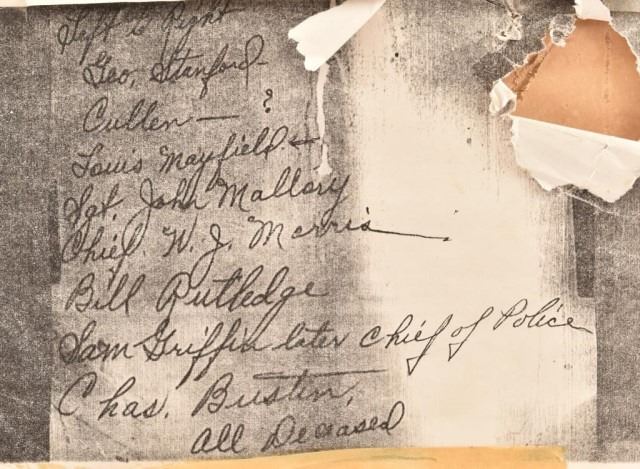 Left to Right
Geo. Stanford
Cullen — ?
Louis Mayfield ←
Sgt. John Mallory
Chief. W. J. Morris
Bill Rutledge
Sam Griffin later chief of Police
Chas. Bustin,
All Deceased